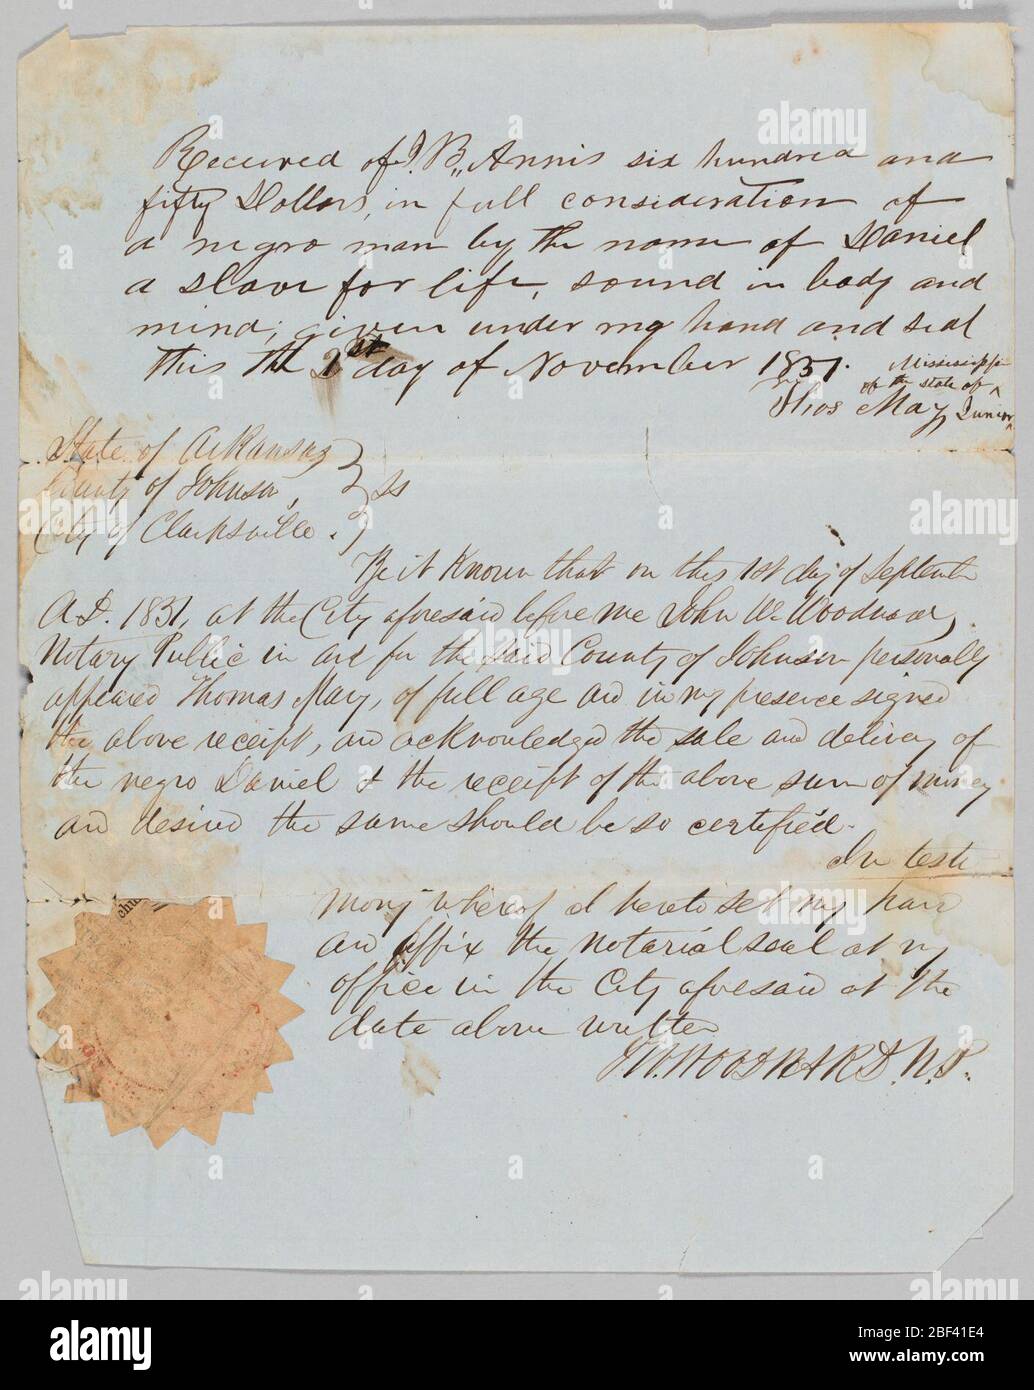 Received of J. B. Annis six hundred and
fifty Dollars, in full consideration of
a negro man by the name of Daniel
a slave for life, sound in body and
mind; given under my hand and seal
this th 1st day of November 1831.
Mississippi
of the state of
Thos May Junior
State of Arkansas
County of Johnson,
City of Clarksville. } ss
Be it Known that on this 1st day of Septemb
A.D. 1831, at the City aforesaid before me John W. Woodward,
Notary Public in and for the said County of Johnson personally
appeared Thomas May, of full age and in my presence signed
the above receipt, and acknowledged the sale and delivery of
the negro Daniel & the receipt of the above sum of money
and desired the same should be so certified.
In testi
mony whereof I hereto set my hand
and affix the notarial seal at my
office in the City aforesaid at the
date above written
J W. WOODWARD. N.P.
alamy
Image ID: 2BF41E4
www.alamy.com